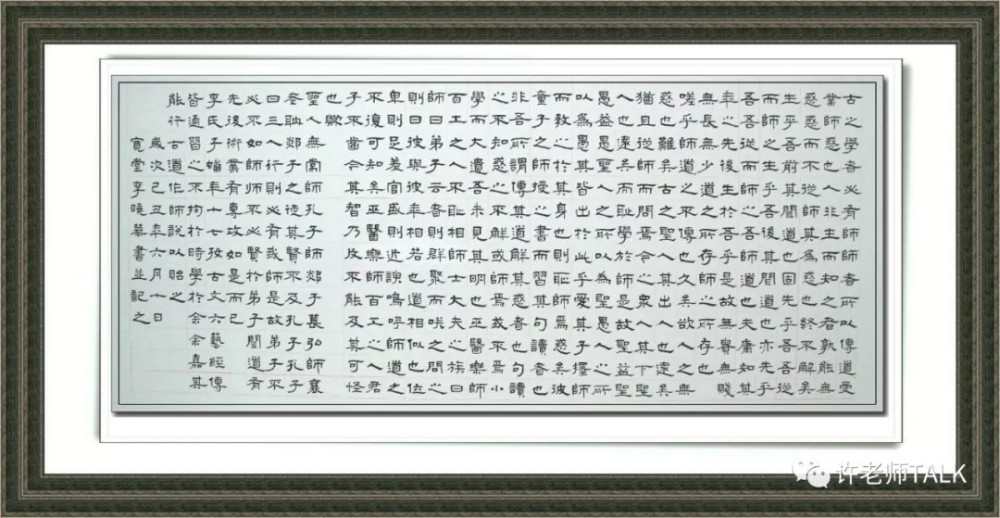 古之學者必有師師者所以傳道受
業解惑也人非生而知之者孰能無
惑惑而不從師其爲惑也終不解矣
生乎吾前其聞道也固先乎吾吾從
而師之生乎吾後其聞道也亦先乎
吾吾從而師之吾師道也夫庸知其
年之先後生於吾乎是故無貴無賤
無長無少道之所存師之所存也
嗟乎師道之不傳也久矣欲人之無
惑也難矣古之聖人其出人也遠矣
猶且從師而問焉今之衆人其下聖
人也遠矣而耻學於師是故聖益聖
愚益愚聖人之所以爲聖愚人之所
以爲愚其皆出於此乎愛其子擇師
而教之於其身也則耻師焉惑矣彼
童子之師授之書而習其句讀者也
非吾所謂傳其道解其惑者也句讀
之不知惑之不解或師焉或不焉小
學而大遺吾未見其明也巫醫樂師
百工之人不耻相師士大夫之族曰
師曰弟子云者則群聚而咲之問之
則曰彼與彼年相若也道相似也位
卑則足羞官盛則近諛嗚呼師道之
不復可知矣巫醫樂師百工之人君
子不齒今其智乃反不能及其可怪
也歟
聖人無常師孔子師郯子萇弘師襄
老聃郯子之徒其賢不及孔子孔子
曰三人行則必有我師是故弟子不
必不如師師不必賢於弟子聞道有
先後術業有專攻如是而已
李氏子蟠年十七好古文六藝經傳
皆通習之不拘於時學於余余嘉其
能行古道作師說以貽之
歲次己丑年六月十日
寬堂李曉書並記之
许老师TALK